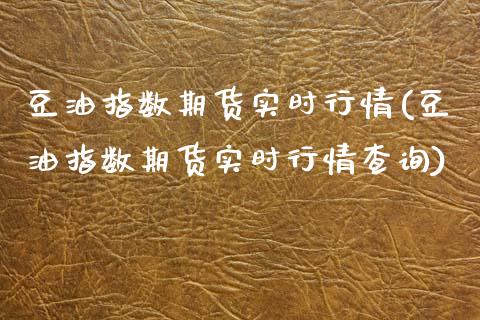 豆油指数期货实时行情(豆
油指数期货实时行情查询)